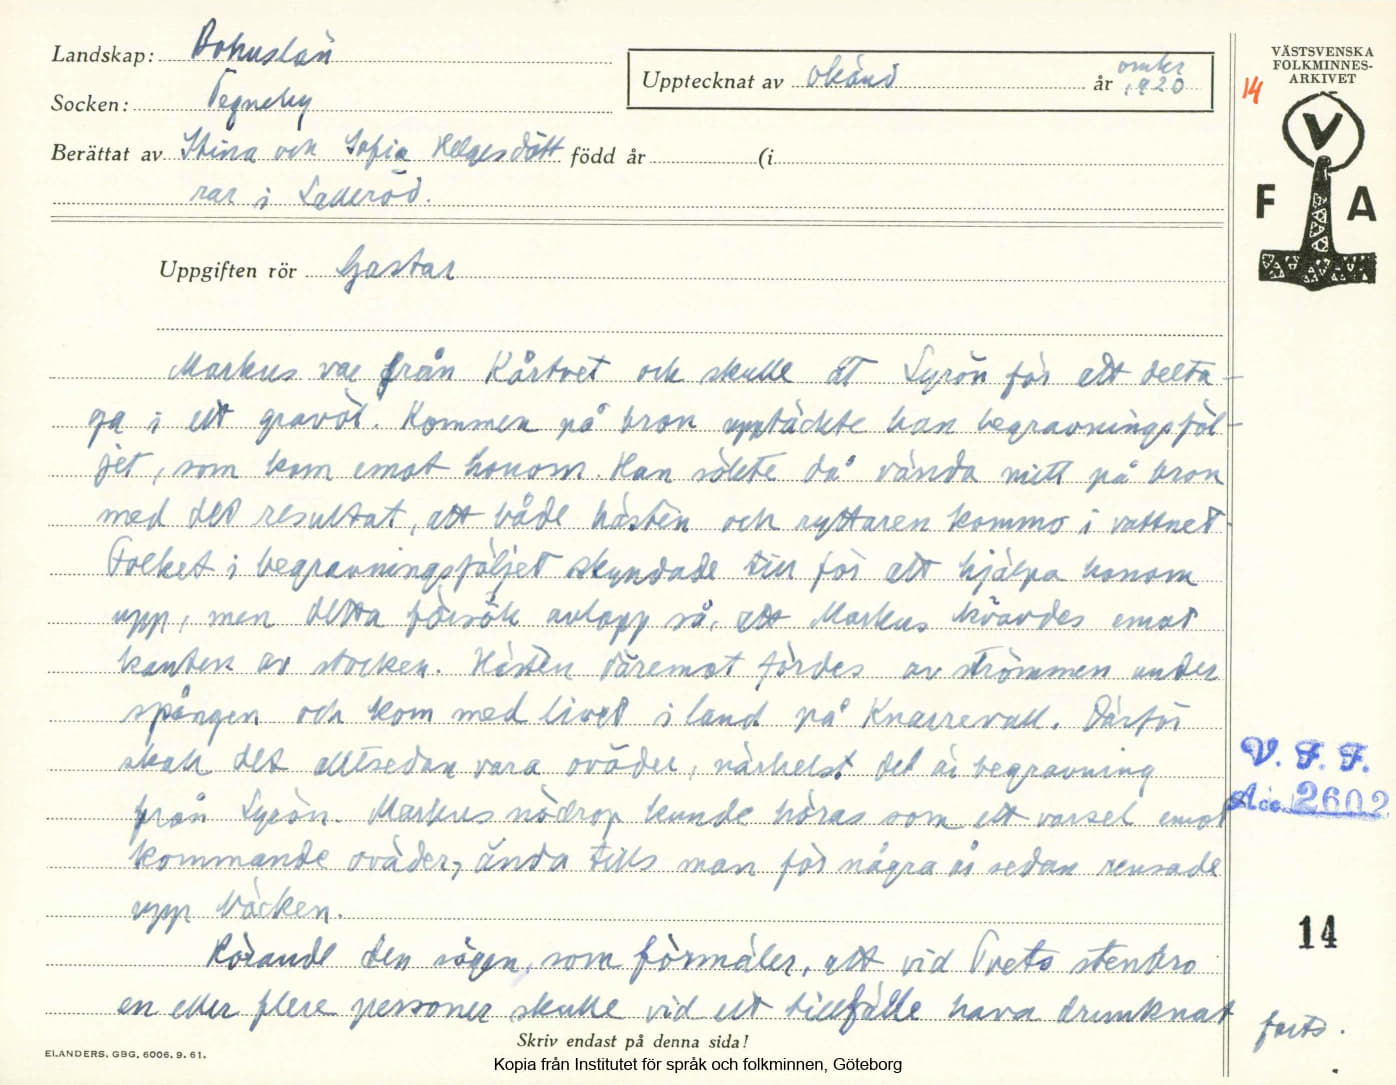 Landskap: Bohuslän
Socken: Tegneby
Berättat av Stina och Sofia Helgesdött född år (i
rar i Salleröd.
Upptecknat av okänd år omkr 1920
VÄSTSVENSKA
FOLKMINNES-
ARKIVET
14
V
F A
Uppgiften rör Gastar
Markus var från Kårtvet och skulle åt Lyrön för att delta-
ga i ett gravöl. Kommen på bron upptäckte han begravningsföl-
jet, som kom emot honom. Han sökte då vända mitt på bron
med det resultat, att både hästen och ryttaren kommo i vattnet.
Folket i begravningsföljet skyndade till för att hjälpa honom
upp, men detta försök avlopp så, att Markus kvävdes emot
kanten av stocken. Hästen däremot fördes av strömmen under
spången och kom med livet i land på Knarrevall. Därför
skall det alltsedan vara oväder, närhelst det är begravning
från Lyrön. Markus nödrop kunde höras som ett varsel emot
kommande oväder, ända tills man för några år sedan rensade
upp bäcken.
Rörande den sägen, som förmäler, att vid Tvets stenbro
en eller flere personer skulle vid ett tillfälle hava drunknat
V. F. F.
Acc. 2602
14
forts.
Skriv endast på denna sida!
ELANDERS, GBG, 6006. 9. 61.
Kopia från Institutet för språk och folkminnen, Göteborg